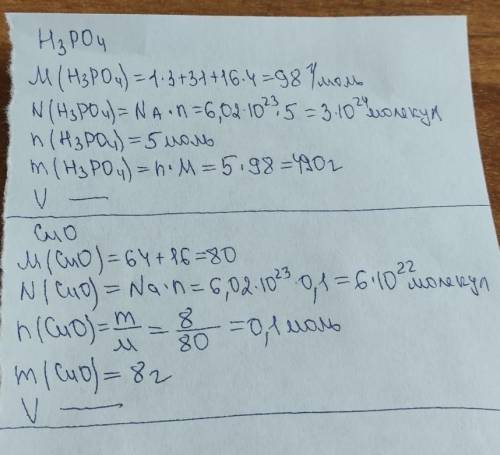 H₃PO₄
M(H₃PO₄)=1·3+31+16·4=98 г/моль
N(H₃PO₄)=NA·n=6,02·10²³·5=3·10²⁴молекул
n(H₃PO₄)=5моль
m(H₃PO₄)=n·M=5·98=490г
V —
CuO
M(CuO)=64+16=80
N(CuO)=Na·n=6,02·10²³·0,1=6·10²²молекул
n(CuO)=m/M=8/80=0,1моль
m(CuO)=8г
V —